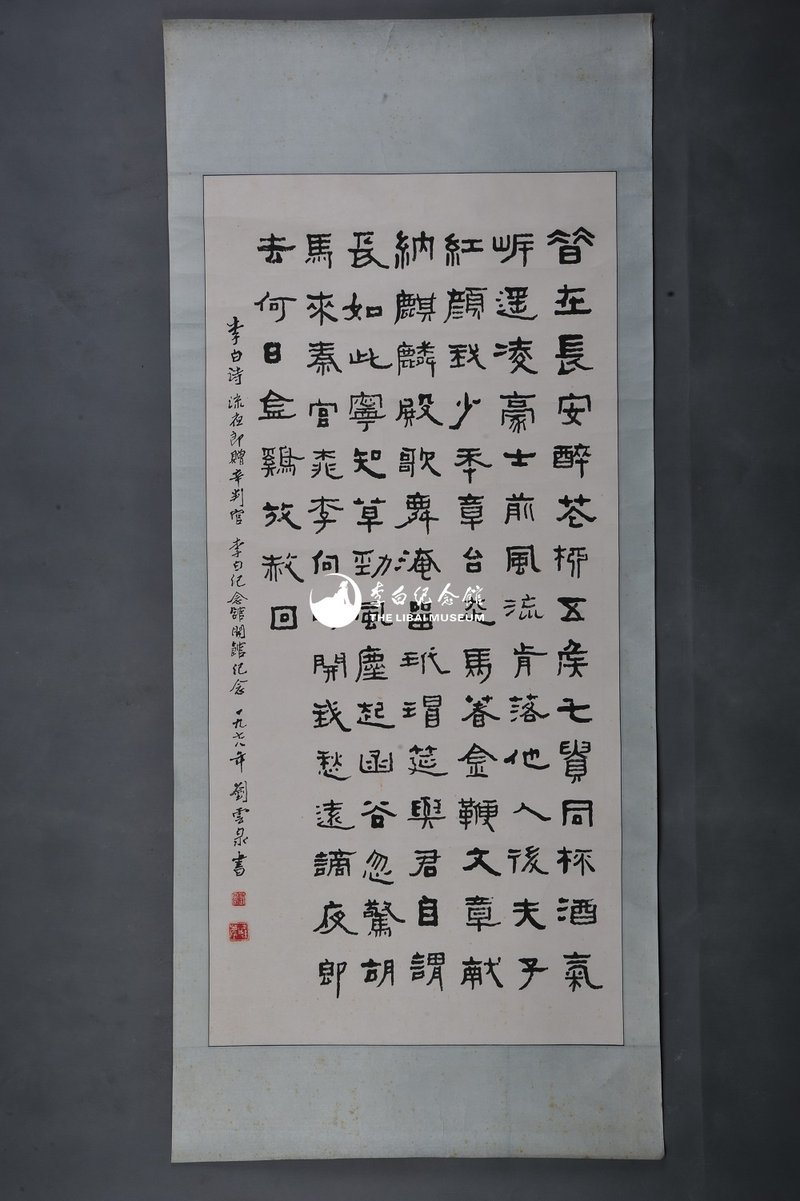 昔在長安醉花柳五侯七貴同杯酒氣
岸遥凌豪士前風流肯落他人後夫子
紅顔我少年章台走馬著金鞭文章献
納麒麟殿歌舞淹留玳瑁筵與君自謂
長如此寧知草勁風塵起函谷忽驚胡
馬來秦宫桃李向開我愁遠謫夜郎
去何日金鷄放赦回
李白诗 流夜郎贈辛判官 李白纪念舘開舘纪念 一九七八年 劉雲泉書
李白纪念馆
THE LIBAI MUSEUM